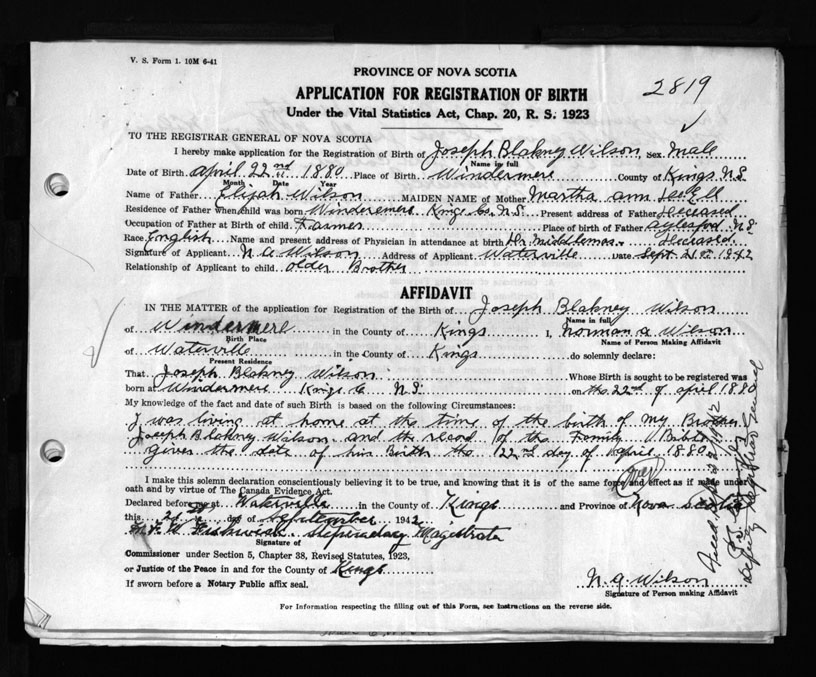 V. S. Form 1. 10M 6-41
PROVINCE OF NOVA SCOTIA
2819
APPLICATION FOR REGISTRATION OF BIRTH
Under the Vital Statistics Act, Chap. 20, R. S. 1923
TO THE REGISTRAR GENERAL OF NOVA SCOTIA
I hereby make application for the Registration of Birth of Joseph Blakney Wilson, Sex Male
Name in full
Date of Birth April 22nd 1880 Place of Birth Windermere County of Kings N.S
Month Date Year
Name of Father Elijah Wilson MAIDEN NAME of Mother Martha Ann
Residence of Father when child was born Windermere Kings Co. N.S. Present address of Father Deceased
Occupation of Father at Birth of child Farmer Place of birth of Father Aylesford N.S
Race English Name and present address of Physician in attendance at birth Dr. Middlemas - Deceased.
Signature of Applicant N A Wilson Address of Applicant Waterville Date Sept. 21st 1942
Relationship of Applicant to child older Brother
AFFIDAVIT
IN THE MATTER of the application for Registration of the Birth of Joseph Blakney Wilson
Name in full
of Windermere in the County of Kings I, Norman A Wilson
Birth Place Name of Person Making Affidavit
of Waterville in the County of Kings do solemnly declare:
Present Residence
That Joseph Blakney Wilson Whose Birth is sought to be registered was
born at Windermere Kings Co N.S. on the 22nd of April 1880
My knowledge of the fact and date of such Birth is based on the following Circumstances:
I was living at home at the time of the birth of My Brother
Joseph Blakney Wilson and the record of the Family Bible
gives the date of his Birth the 22nd day of April 1880
(Over)
I make this solemn declaration conscientiously believing it to be true, and knowing that it is of the same force and effect as if made under
oath and by virtue of The Canada Evidence Act.
Declared before me at Waterville in the County of Kings and Province of Nova Scotia
this day of September 1942
Stipendiary Magistrate
Signature of
Commissioner under Section 5, Chapter 38, Revised Statutes, 1923,
or Justice of the Peace in and for the County of Kings
If sworn before a Notary Public affix seal.
N. A. Wilson
Signature of Person making Affidavit
For Information respecting the filling out of this Form, see Instructions on the reverse side.
Deputy Registrar General